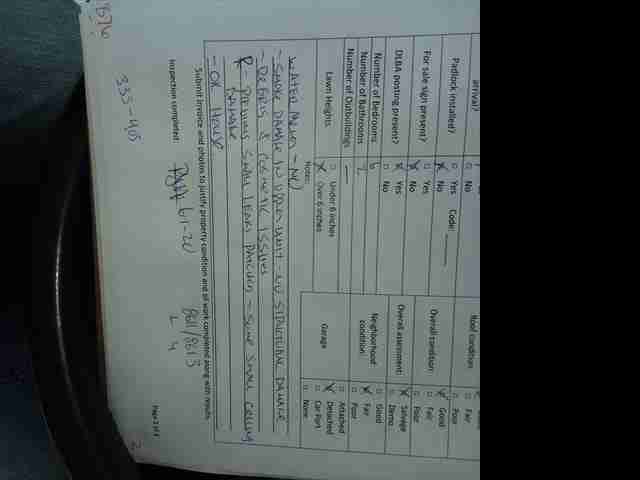 arrival?
□ No
Padlock installed?
□ Yes Code:
☒ No
For sale sign present?
□ Yes
☒ No
DLBA posting present?
☒ Yes
□ No
Number of Bedrooms 6
Number of Bathrooms 2
Number of Outbuildings —
Lawn Heights
□ Under 6 inches
☒ Over 6 inches
Roof condition
□ Fair
□ Poor
Overall condition:
☒ Good
□ Fair
□ Poor
Overall assessment:
☒ Salvage
□ Demo
Neighborhood condition:
□ Good
☒ Fair
□ Poor
Garage
□ Attached
☒ Detached
□ Car Port
□ None
Notes:
WATER
- SMOKE DAMAGE IN UPPER UNIT - NO STRUCTURAL DAMAGE
- DEBRIS & COSMETIC ISSUES
- PREVIOUS SMALL LEAKS - SOME SMALL CEILING
DAMAGE
- OK HOUSE
Submit invoice and photos to justify property condition and all work completed along with results.
Inspection completed:
Page 2 of 2